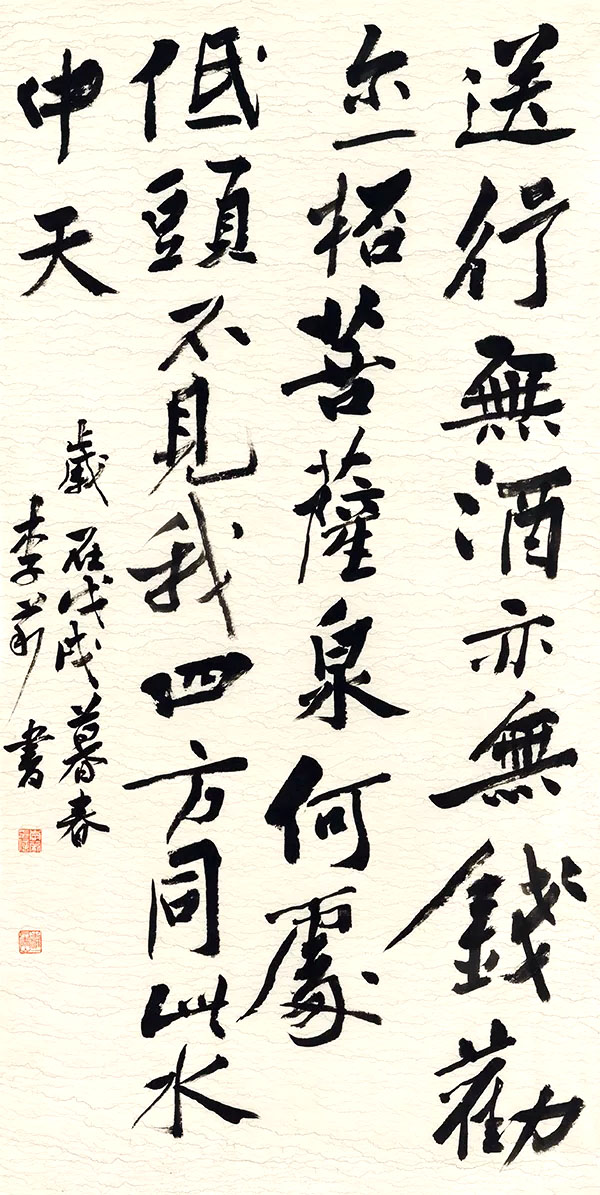 送行無酒亦無錢勸
尔一桮菩薩泉何處
低頭不見我四方同此水
中天
歲在戊戌暮春
李 書